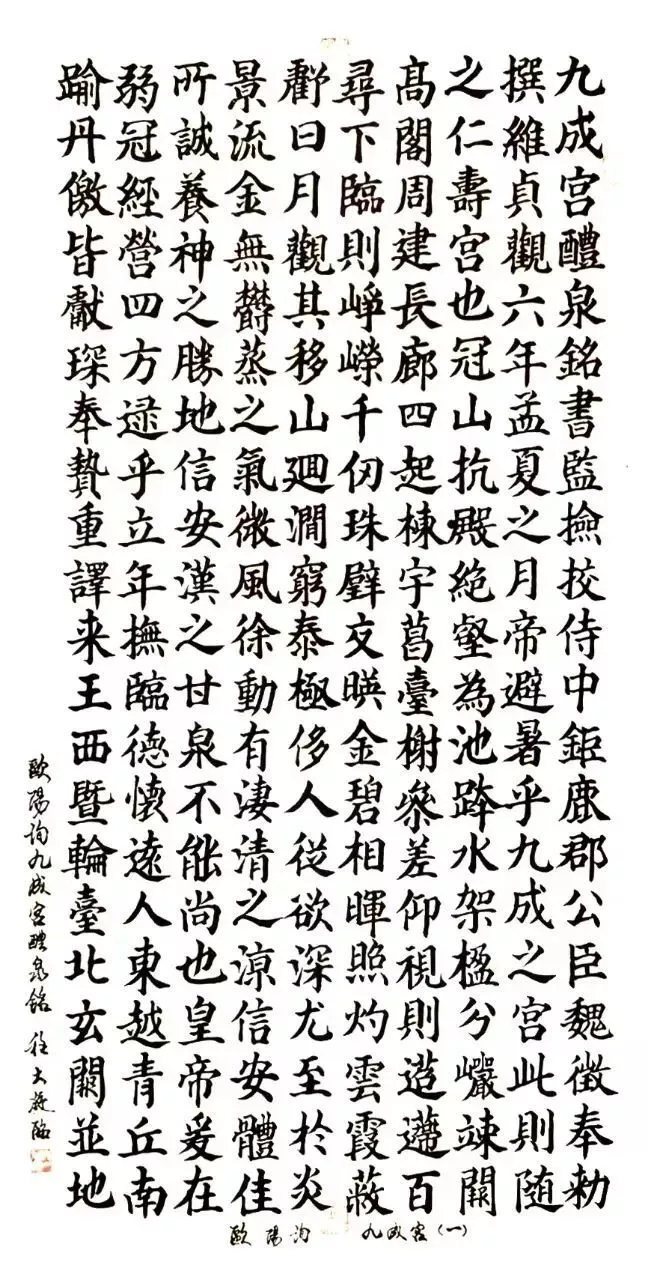 九成宫醴泉銘書監撿挍侍中鉅鹿郡公臣魏徵奉勅
撰維貞觀六年孟夏之月帝避暑乎九成之宫此則随
之仁壽宫也冠山抗殿絶壑為池跨水架楹分巖竦闕
髙閣周建長廊四起棟宇葛臺榭參差仰視則迢遰百
尋下臨則崢嶸千仞珠璧交暎金碧相暉照灼雲霞蔽
虧日月觀其移山廻澗窮泰極侈人從欲深尤至於炎
景流金無欝蒸之氣微風徐動有凄清之凉信安體佳
所誠養神之勝地信安漢之甘泉不能尚也皇帝爰在
弱冠經營四方逮乎立年撫臨德懷遠人東越青丘南
踰丹儌皆獻琛奉贄重譯来王西暨輪臺北玄闕並地
歐陽詢九成宫醴泉銘 任大臨
歐陽詢 九成宫(一)